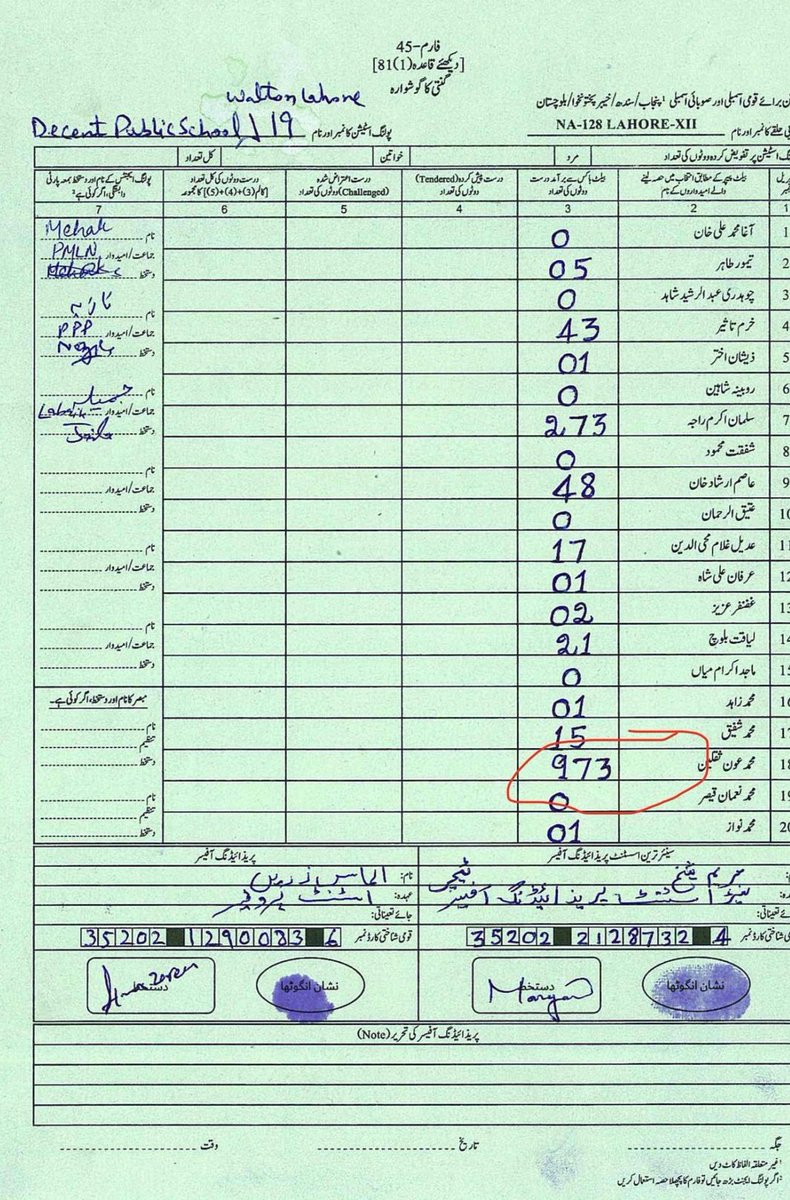 فارم-45
[دیکھئے قاعدہ 81(1)]
گنتی کا گوشوارہ
Walton Lahore
برائے قومی اسمبلی اور صوبائی اسمبلی پنجاب/سندھ/خیبر پختونخوا/بلوچستان
حلقے کا نمبر اور نام NA-128 LAHORE-XII پولنگ اسٹیشن کا نمبر اور نام Decent Public School 119
اسٹیشن پر تفویض کردہ ووٹوں کی تعداد مرد خواتین کل تعداد
بیلٹ پیپر کے مطابق انتخاب میں حصہ لینے والے امیدواروں کے نام
بیلٹ باکس سے برآمد درست ووٹوں کی تعداد
درست پیش کردہ (Tendered) ووٹوں کی تعداد
درست اعتراض شدہ (Challenged) ووٹوں کی تعداد
درست ووٹوں کی کل تعداد [کالم (3)+(4)+(5) کا مجموعہ]
پولنگ ایجنٹس کے نام اور دستخط بمعہ پارٹی وابستگی، اگر کوئی ہے
1 2 3 4 5 6 7
1 آغا محمد علی خان 0
2 تیمور طاہر 05
3 چوہدری عبد الرشید شاہد 0
4 خرم تاثیر 43
5 ذیشان اختر 01
6 روبینہ شاہین 0
7 سلمان اکرم راجہ 273
8 شفقت محمود 0
9 عاصم ارشاد خان 48
10 عتیق الرحمان 0
11 عدیل غلام محی الدین 17
12 عرفان علی شاہ 01
13 غضنفر عزیز 02
14 لیاقت بلوچ 21
15 ماجد اکرام میاں 0
16 محمد زاہد 01
17 محمد شفیق 15
18 محمد عون ثقلین 973
19 محمد نعمان قیصر 0
20 محمد نواز 01
نام Mehak
جماعت/امیدوار PMLN
دستخط
نام نازیہ
جماعت/امیدوار PPP
دستخط
نام جمیلہ
جماعت/امیدوار
دستخط
نام
جماعت/امیدوار
دستخط
نام
جماعت/امیدوار
دستخط
نام
جماعت/امیدوار
دستخط
مبصر کا نام اور دستخط، اگر کوئی ہے۔
نام
تنظیم
دستخط
نام
تنظیم
دستخط
سینئر ترین اسسٹنٹ پریذائیڈنگ آفیسر
نام: مریم شیخ ٹیچر
عہدہ: اسسٹنٹ پریذائیڈنگ آفیسر
جائے تعیناتی:
قومی شناختی کارڈ نمبر 35202 2128732 4
نشان انگوٹھا
دستخط Maryam
پریذائیڈنگ آفیسر
نام: الماس زریں
عہدہ: اسٹنٹ پروفیسر
جائے تعیناتی:
قومی شناختی کارڈ نمبر 35202 1290083 6
نشان انگوٹھا
دستخط
پریذائیڈنگ آفیسر کی تحریر (Note)
جگہ تاریخ وقت
غیر متعلقہ الفاظ کاٹ دیں
اگر پولنگ ایجنٹ بڑھ جائیں تو فارم کا پچھلا حصہ استعمال کریں